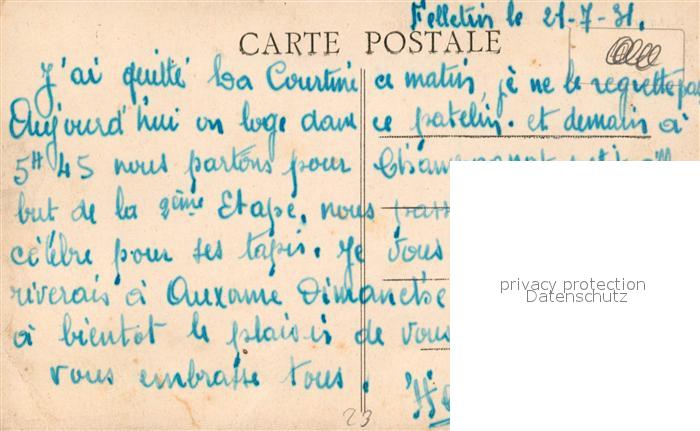 Felletin le 21-7-31.
CARTE POSTALE
J'ai quitté La Courtine ce matin, je ne le regrette pas
Aujourd'hui on loge dans ce patelin. et demain à
5H45 nous partons pour
but de la 2ème Etape, nous
célèbre pour ses tapis. Je vous
riverais à Auxanne Dimanche
à bientot le plaisir de vous
vous embrasse tous.
23
privacy protection
Datenschutz